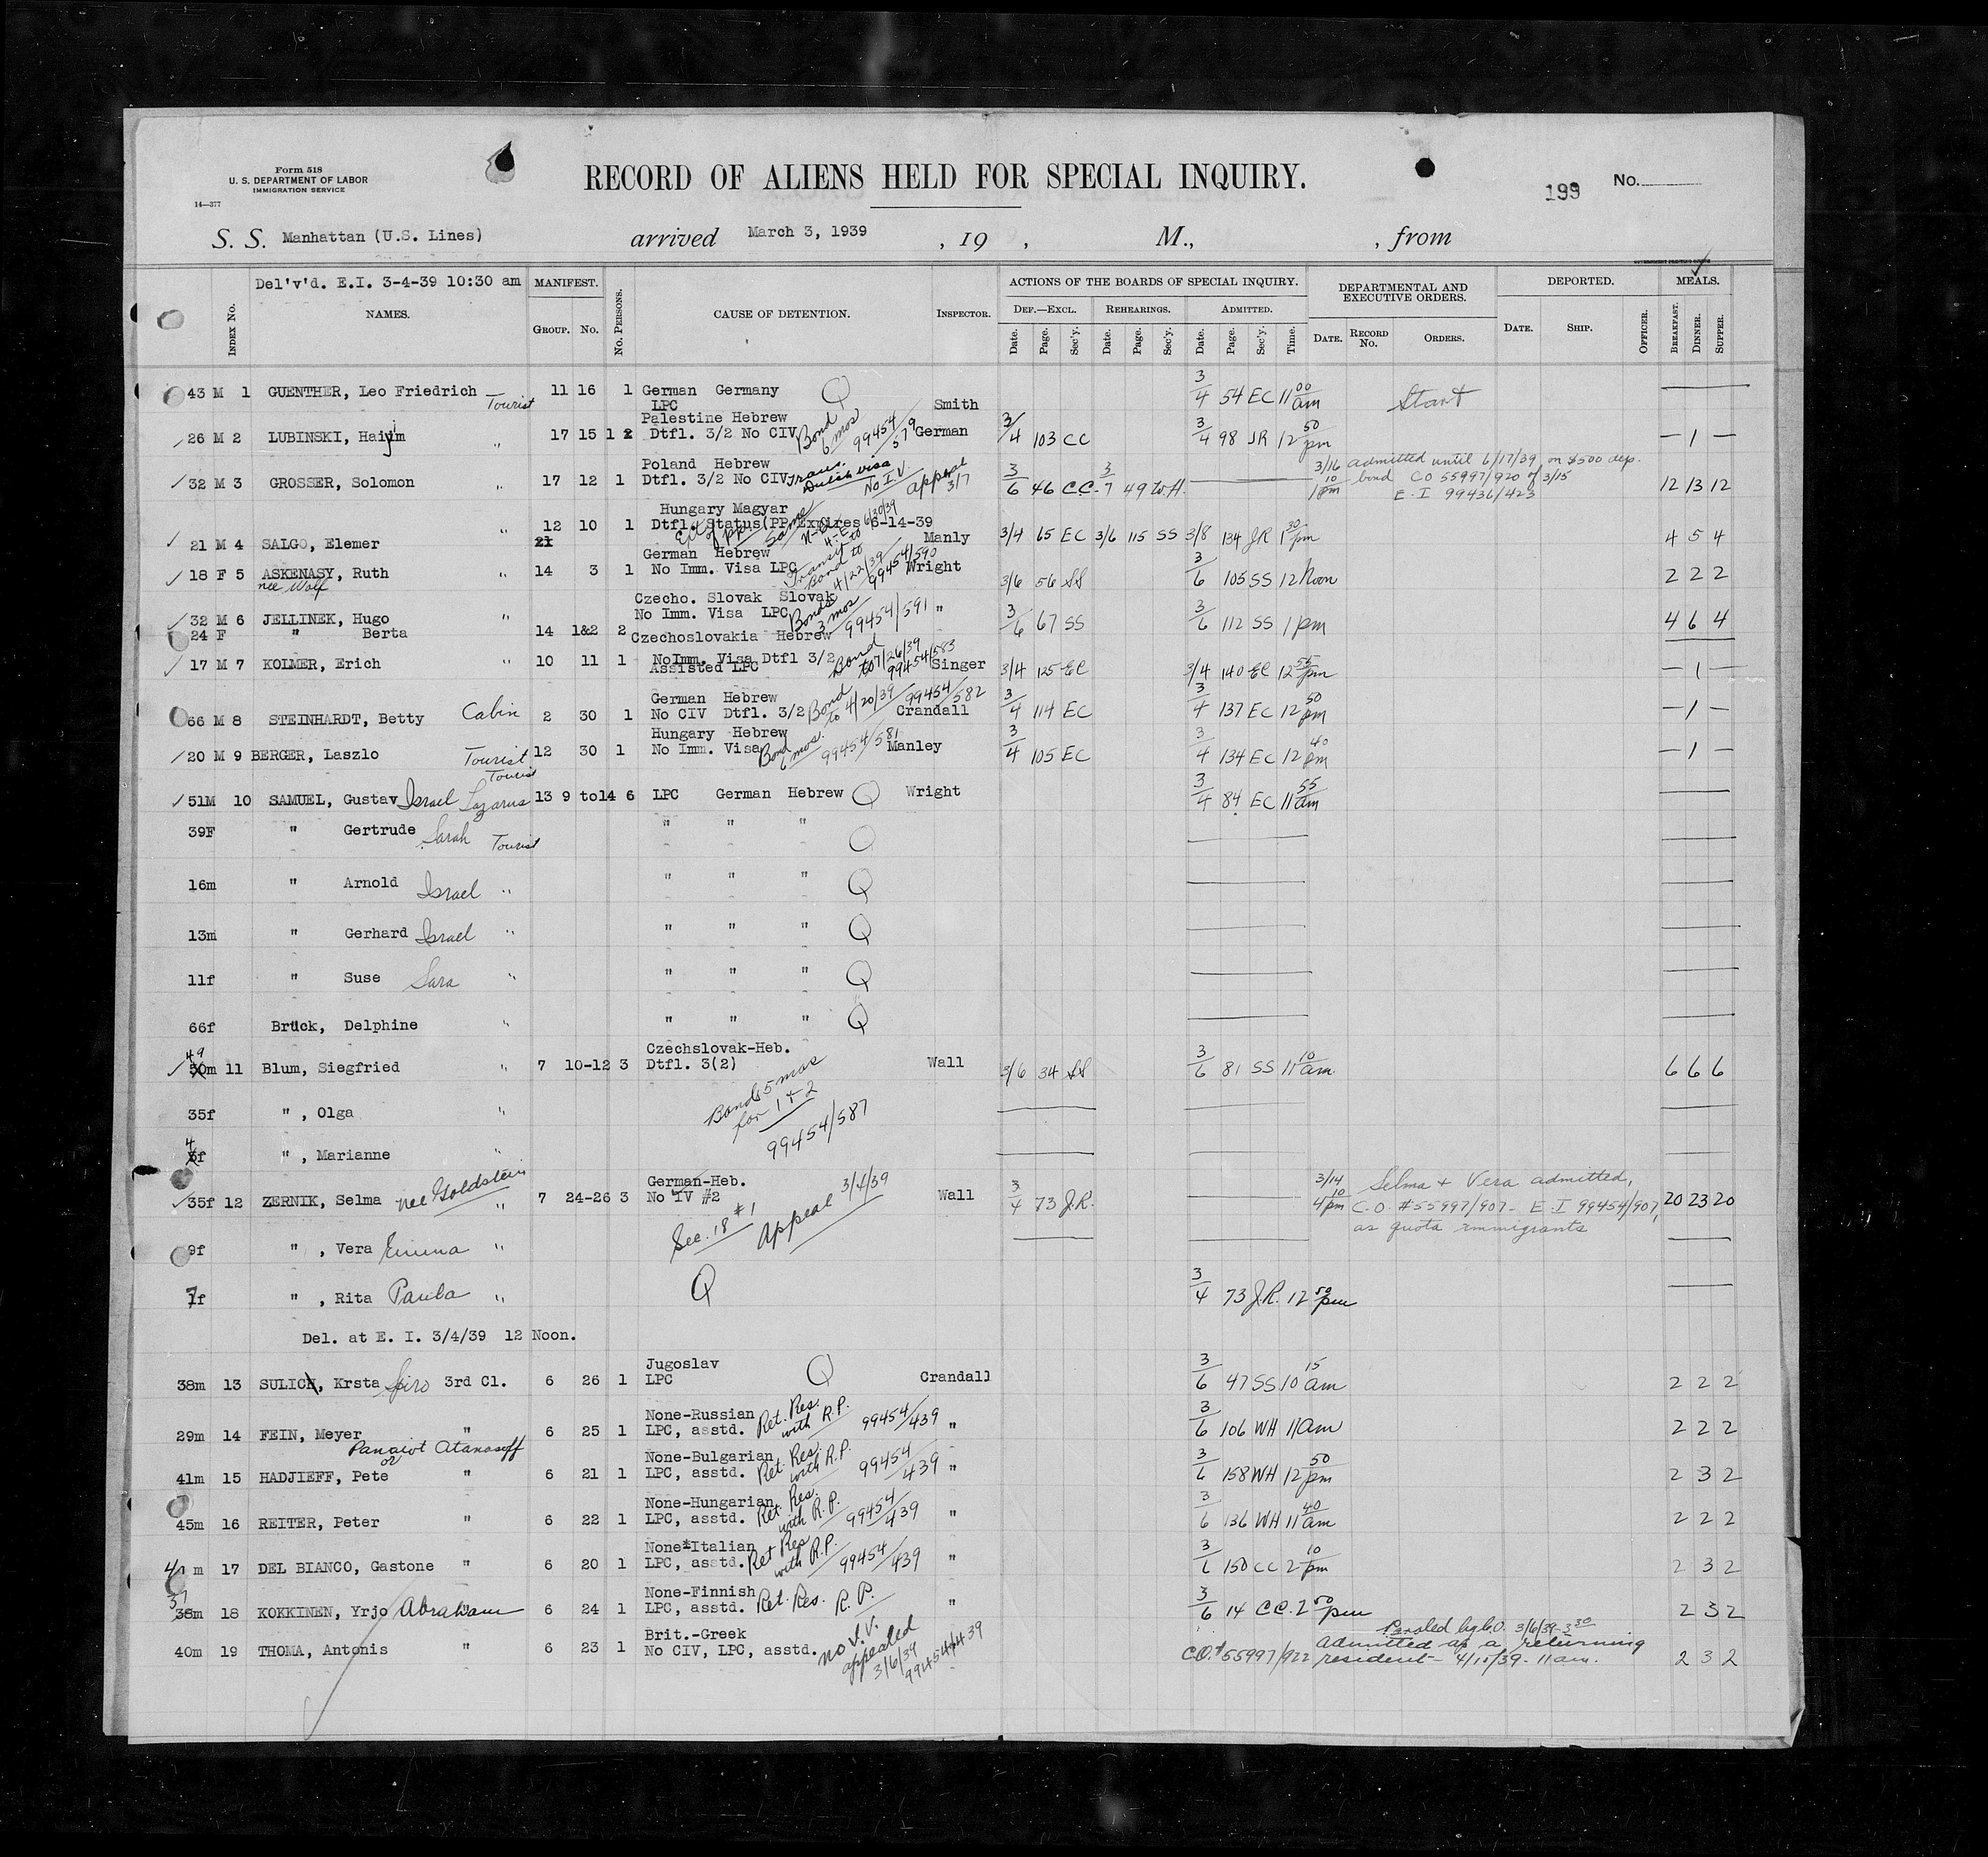 Form 518
U. S. DEPARTMENT OF LABOR
IMMIGRATION SERVICE
14—377
RECORD OF ALIENS HELD FOR SPECIAL INQUIRY.
199 No.
S. S. Manhattan (U.S. Lines) arrived March 3, 1939 , 19 , M., , from
Del'v'd. E.I. 3-4-39 10:30 am MANIFEST. ACTIONS OF THE BOARDS OF SPECIAL INQUIRY. DEPARTMENTAL AND EXECUTIVE ORDERS. DEPORTED. MEALS.
INDEX No. NAMES. GROUP. No. No. PERSONS. CAUSE OF DETENTION. INSPECTOR. DEF.—EXCL. REHEARINGS. ADMITTED.
Date. Page. Sec'y. Date. Page. Sec'y. Date. Page. Sec'y. Time. DATE. RECORD No. ORDERS. DATE. SHIP. OFFICER. BREAKFAST. DINNER. SUPPER.
43 M 1 GUENTHER, Leo Friedrich Tourist 11 16 1 German Germany Q
LPC Smith 3/4 54 EC 11 00 am Start
Palestine Hebrew
26 M 2 LUBINSKI, Haim " 17 15 1 Dtfl. 3/2 No CIV Bond 6 mos 99454/579 German 3/4 103 CC 3/4 98 JR 12 50 pm — 1 —
Poland Hebrew
32 M 3 GROSSER, Solomon " 17 12 1 Dtfl. 3/2 No CIV Trans. Dutch visa No I.V. appeal 3/7 3/6 46 C.C. 3/7 49 W.H. 3/16 1 10 pm admitted until 6/17/39 on $500 dep. bond CO 55997/920 of 3/15 E.I 99436/423 12 13 12
Hungary Magyar
21 M 4 SALGO, Elemer " 12 10 1 Dtfl. Status(PP Expires 6-14-39 Manly 3/4 65 EC 3/6 115 SS 3/8 134 JR 1 30 pm 4 5 4
21
German Hebrew
18 F 5 ASKENASY, Ruth " 14 3 1 No Imm. Visa LPC Transit Bond to 4/22/39 99454/590 Wright 3/6 56 SS 3/6 105 SS 12 Noon 2 2 2
nee Wolf
Czecho. Slovak Slovak
32 M 6 JELLINEK, Hugo " No Imm. Visa LPC Bonds 3 mos 99454/591 " 3/6 67 SS 3/6 112 SS 1 pm 4 6 4
24 F " Berta 14 1&2 2
Czechoslovakia Hebrew
17 M 7 KOLMER, Erich " 10 11 1 No Imm. Visa Dtfl 3/2 Bond to 7/26/39 99454/583 Singer 3/4 125 EC 3/4 140 EC 12 55 pm — 1 —
Assisted LPC
German Hebrew
66 M 8 STEINHARDT, Betty Cabin 2 30 1 No CIV Dtfl. 3/2 Bond to 4/20/39 99454/582 Crandall 3/4 114 EC 3/4 137 EC 12 50 pm — 1 —
Hungary Hebrew
20 M 9 BERGER, Laszlo Tourist 12 30 1 No Imm. Visa Bond 6 mos. 99454/581 Manley 3/4 105 EC 3/4 134 EC 12 40 pm — 1 —
51M 10 SAMUEL, Gustav Israel Lazarus Tourist 13 9 to14 6 LPC German Hebrew Q Wright 3/4 84 EC 11 55 am
39F " Gertrude Sarah Tourist " " "
16m " Arnold Israel " " " " Q
13m " Gerhard Israel " " " " Q
11f " Suse Sara " " " " Q
66f Brück, Delphine " " " " Q
Czechslovak-Heb.
49 50m 11 Blum, Siegfried " 7 10-12 3 Dtfl. 3(2) Wall 3/6 34 SS 3/6 81 SS 11 10 am 6 6 6
35f ", Olga " Bonds 5 mos for 1 & 2
4 f ", Marianne " 99454/587
German-Heb.
35f 12 ZERNIK, Selma nee Goldstein " 7 24-26 3 No IV #2 Sec. 18 #1 Appeal 3/4/39 Wall 3/4 73 J.R. 3/14 4 10 pm Selma + Vera admitted, C.O. #55997/907 - E.I 99454/907, as quota immigrants 20 23 20
9f ", Vera Emma "
7f ", Rita Paula " Q 3/4 73 J.R. 12 50 pm
Del. at E. I. 3/4/39 12 Noon.
Jugoslav
38m 13 SULICH, Krsta Spiro 3rd Cl. 6 26 1 LPC Q Crandall 3/6 47 SS 10 15 am 2 2 2
None-Russian
29m 14 FEIN, Meyer " 6 25 1 LPC, asstd. Ret. Res. with R.P. 99454/439 " 3/6 106 WH 11 am 2 2 2
Panaiot Atanasoff
or
None-Bulgarian
41m 15 HADJIEFF, Pete " 6 21 1 LPC, asstd. Ret. Res. with R.P. 99454/439 " 3/6 158 WH 12 50 pm 2 3 2
None-Hungarian
45m 16 REITER, Peter " 6 22 1 LPC, asstd. Ret. Res. with R.P. 99454/439 " 3/6 136 WH 11 40 am 2 2 2
None-Italian
m 17 DEL BIANCO, Gastone " 6 20 1 LPC, asstd. Ret Res with R.P. 99454/439 " 3/6 150 CC 2 10 pm 2 3 2
None-Finnish
37 38m 18 KOKKINEN, Yrjo Abraham " 6 24 1 LPC, asstd. Ret. Res. R.P. " 3/6 14 CC. 2 50 pm 2 3 2
Brit.-Greek
40m 19 THOMA, Antonis " 6 23 1 No CIV, LPC, asstd. no I.V. appealed 3/6/39 99454/439 C.O. #55997/922 Paroled 3/6/39 3 30 Admitted as a returning resident - 4/11/39 - 11 am. 2 3 2